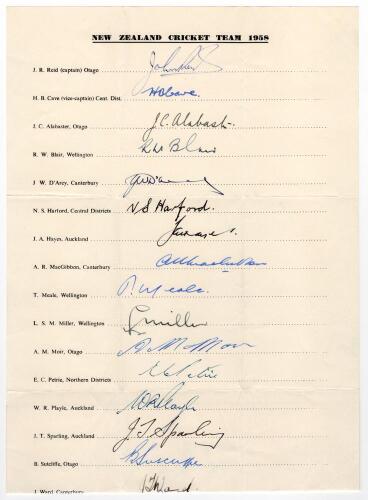 NEW ZEALAND CRICKET TEAM 1958
J. R. Reid (captain) Otago John Reid
H. B. Cave (vice-captain) Cent. Dist. HBCave.
J. C. Alabaster, Otago J.C. Alabaster.
R. W. Blair, Wellington RW Blair
J W. D'Arcy, Canterbury JWD'Arcy
N. S. Harford, Central Districts N S Harford.
J. A. Hayes, Auckland
A. R. MacGibbon, Canterbury
T. Meale, Wellington T. Meale.
L. S. M. Miller, Wellington Miller
A. M. Moir, Otago A M Moir
E. C. Petrie, Northern Districts E C Petrie
W. R. Playle, Auckland W R Playle
J. T. Sparling, Auckland J. T Sparling
B. Sutcliffe, Otago B Sutcliffe
J. Ward, Canterbury J Ward